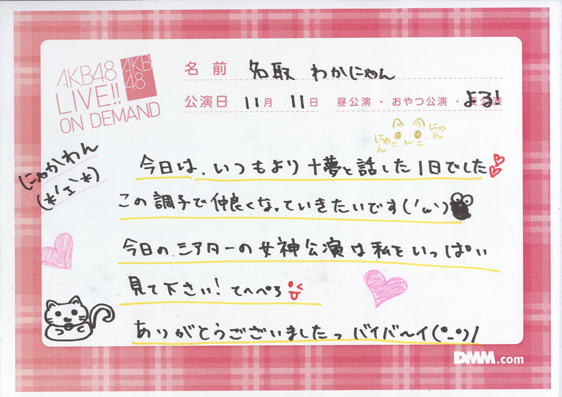 AKB48
LIVE!!
ON DEMAND
AKB
48
名前 名取 わかにゃん
公演日 11月 11日 昼公演・おやつ公演・よる!
にゃん
にゃん
にゃかわん
(*'ェ`*)
今日は、いつもより十夢と話した1日でした
この調子で仲良くなっていきたいです('ω')
今日のシアターの女神公演は私をいっぱい
見て下さい!てへぺろ
ありがとうございましたっ バイバ〜イ(°-°)/
DMM.com